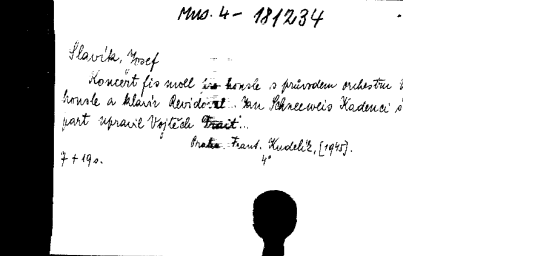 Mus. 4 - 181234
Slavík, Josef
Koncert fis moll pro housle s průvodem orchestru
housle a klavír Revidoval Jan Schneeweis Kadenci
part upravil Vojtěch Frait.
Praha. Frant. Kudelík, [1945].
7 + 19 s. 4°